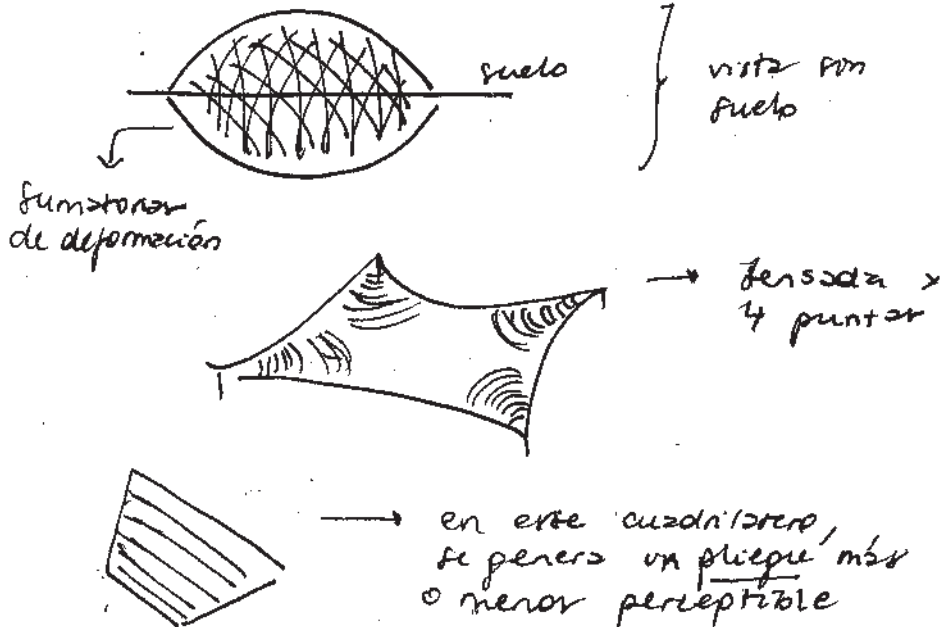 suelo
vista son
suelo
sumatorias
de deformación
tensada x
4 puntas
en este cuadrilatero,
se genera un pliegue, más
o menor perceptible